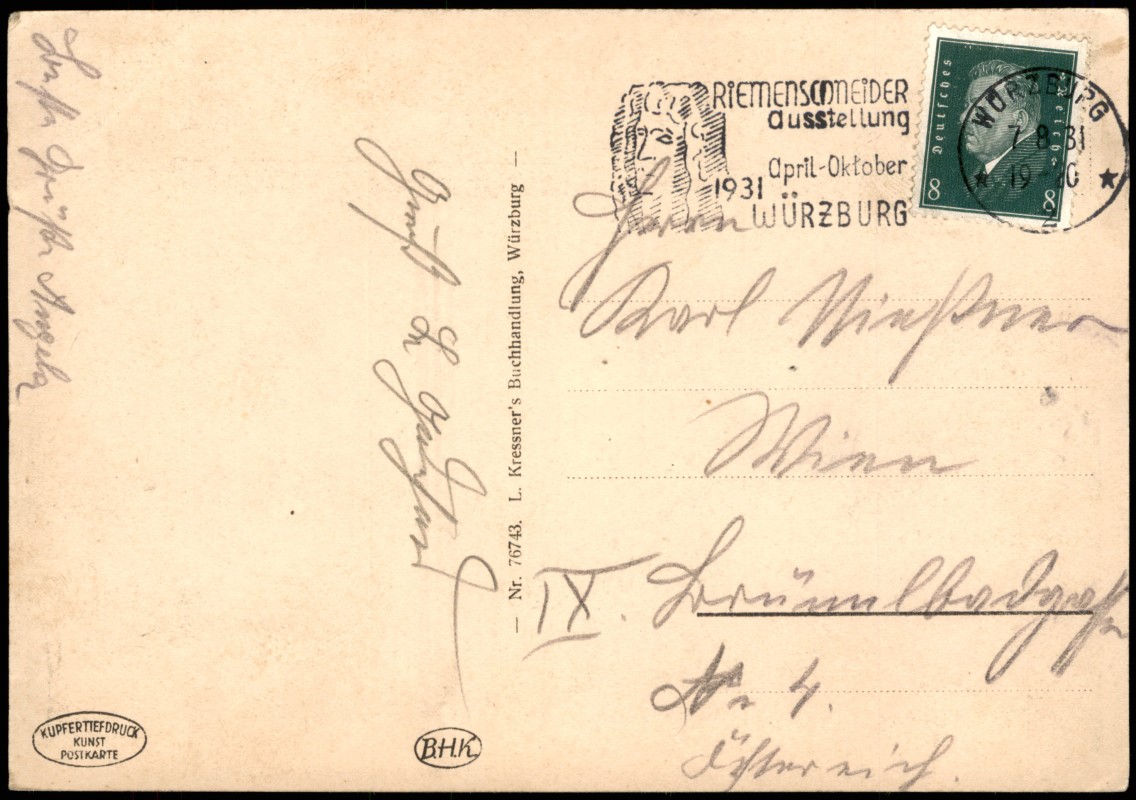 RIEMENSCHNEIDER
ausstellung
april-Oktober
1931 WÜRZBURG
Deutsches Reich
8 8
WÜRZBURG
7.8.31
19-20
2
Herrn
Karl
Wien
IX. Brünnlbadgasse
Nr 4.
Österreich.
Nr. 76743. L. Kressner's Buchhandlung, Würzburg
Gruß
Grüße Angela
KUPFERTIEFDRUCK
KUNST
POSTKARTE
B.H.K.